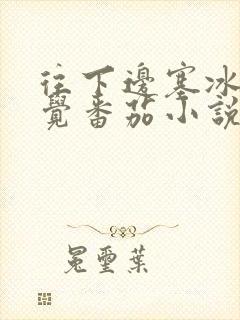 往下邊塞冰
覺番茄小說
冕璽葉